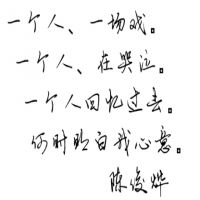 一个人、一场戏。
一个人、在哭泣。
一个人回忆过去。
何时明白我心意。
陈俊烨